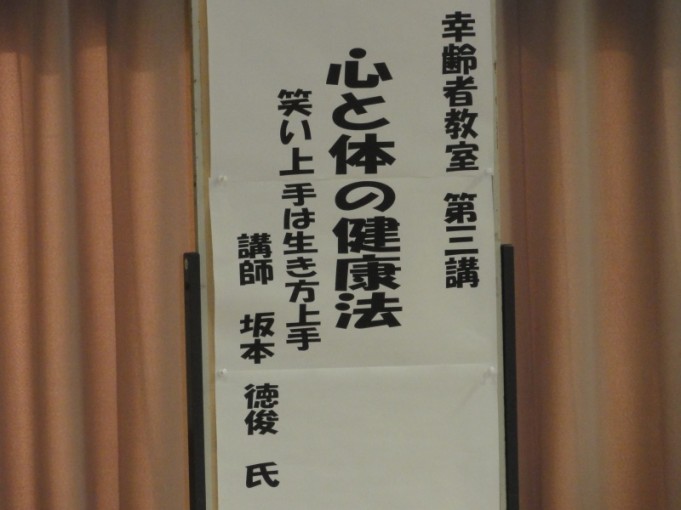 幸齢者教室 第三講
心と体の健康法
笑い上手は生き方上手
講師 坂本 徳俊 氏